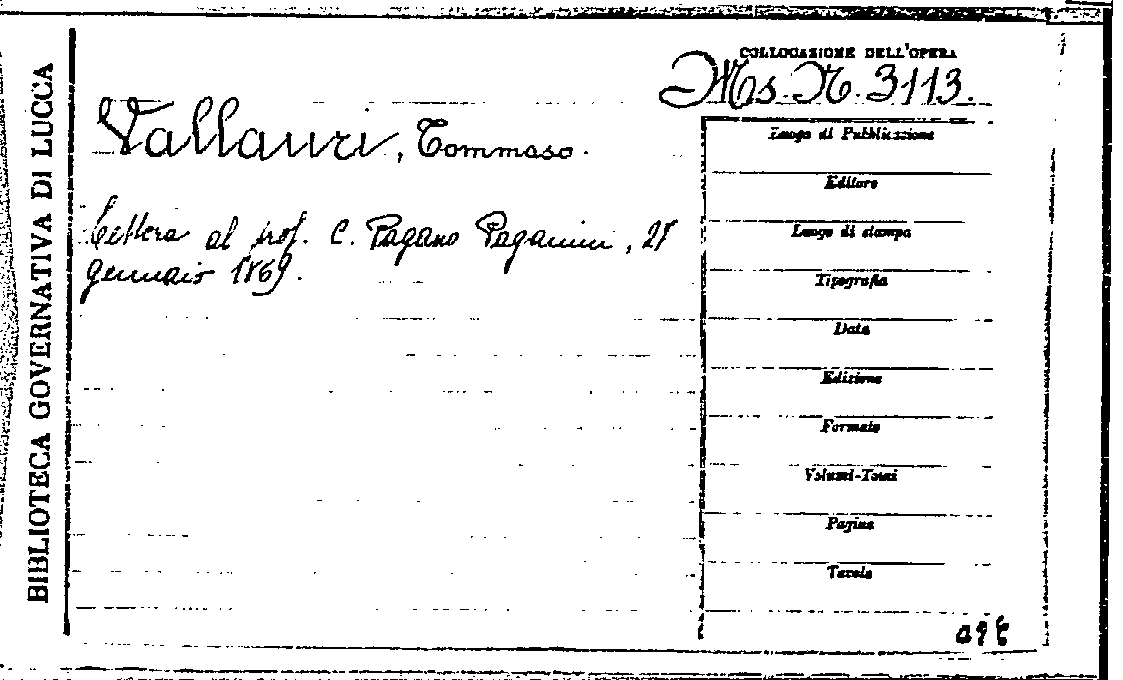 BIBLIOTECA GOVERNATIVA DI LUCCA
COLLOCAZIONE DELL'OPERA
Ms. N. 3113.
Vallauri, Tommaso.
Lettera al prof. C. Pagano Paganini,
gennaio 1869.
Luogo di Pubblicazione
Editore
Luogo di stampa
Tipografia
Data
Edizione
Formato
Volumi-Tomi
Pagine
Tavole